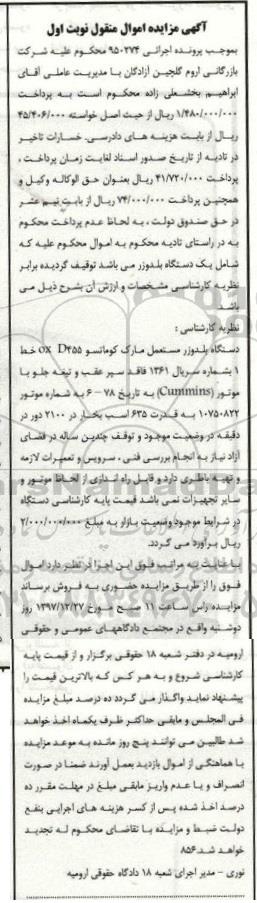 آگهی مزایده اموال منقول نوبت اول
بموجب پرونده اجرائی ۹۵۰۲۷۴ محکوم علیه شرکت
بازرگانی اروم گلچین آزادگان با مدیریت عاملی آقای
ابراهیم بخشعلی زاده محکوم است به پرداخت
۱/۴۸۰/۰۰۰/۰۰۰ ریال از حیث اصل خواسته ۴۵/۴۰۶/۰۰۰
ریال از بابت هزینه های دادرسی، خسارات تاخیر
در تادیه از تاریخ صدور اسناد لغایت زمان پرداخت ،
پرداخت ۴۱/۷۲۰/۰۰۰ ریال بعنوان حق الوکاله وکیل و
همچنین پرداخت ۷۴/۰۰۰/۰۰۰ ریال از بابت نیم عشر
در حق صندوق دولت ، به لحاظ عدم پرداخت محکوم
به در راستای تادیه محکوم به اموال محکوم علیه که
شامل یک دستگاه بلدوزر می باشد توقیف گردیده برابر
نظریه کارشناسی مشخصات و ارزش آن بشرح ذیل می
باشد
نظریه کارشناسی :
دستگاه بلدوزر مستعمل مارک کوماتسو ox D۴۵۵ خط
۱ بشماره سریال ۱۳۶۱ فاقد سپر عقب و تیغه جلو با
موتور (Cummins) به تاریخ ۷۸ – ۶ به شماره موتور
۱۰۷۵۰۸۲۲ به قدرت ۶۳۵ اسب بخار در ۲۱۰۰ دور در
دقیقه در وضعیت موجود و توقف چندین ساله در فضای
آزاد نیاز به انجام بررسی فنی ، سرویس و تعمیرات لازمه
و تهیه باطری دارد و قابل راه اندازی از لحاظ موتور و
سایر تجهیزات نمی باشد قیمت پایه کارشناسی دستگاه
در شرایط موجود وضعیت بازار به مبلغ ۲/۰۰۰/۰۰۰/۰۰۰
ریال برآورد می گردد.
با عنایت به مراتب فوق این اجرا در نظر دارد اموال
فوق را از طریق مزایده حضوری به فروش برساند
مزایده راس ساعت ۱۱ صبح مورخ ۱۳۹۷/۱۲/۲۷ روز
دوشنبه واقع در مجتمع دادگاههای عمومی و حقوقی
ارومیه در دفتر شعبه ۱۸ حقوقی برگزار و از قیمت پایه
کارشناسی شروع و به هر کس که بالاترین قیمت را
پیشنهاد نماید واگذار می گردد ده درصد مبلغ مزایده
فی المجلس و مابقی حداکثر ظرف یکماه اخذ خواهد
شد طالبین می توانند پنج روز مانده به موعد مزایده
با هماهنگی از اموال بازدید بعمل آورند ضمنا در صورت
انصراف و یا عدم واریز مابقی مبلغ در مهلت مقرر ده
درصد اخذ شده پس از کسر هزینه های اجرایی بنفع
دولت ضبط و مزایده با تقاضای محکوم له تجدید
خواهد شد.۸۵۶
نوری – مدیر اجرای شعبه ۱۸ دادگاه حقوقی ارومیه